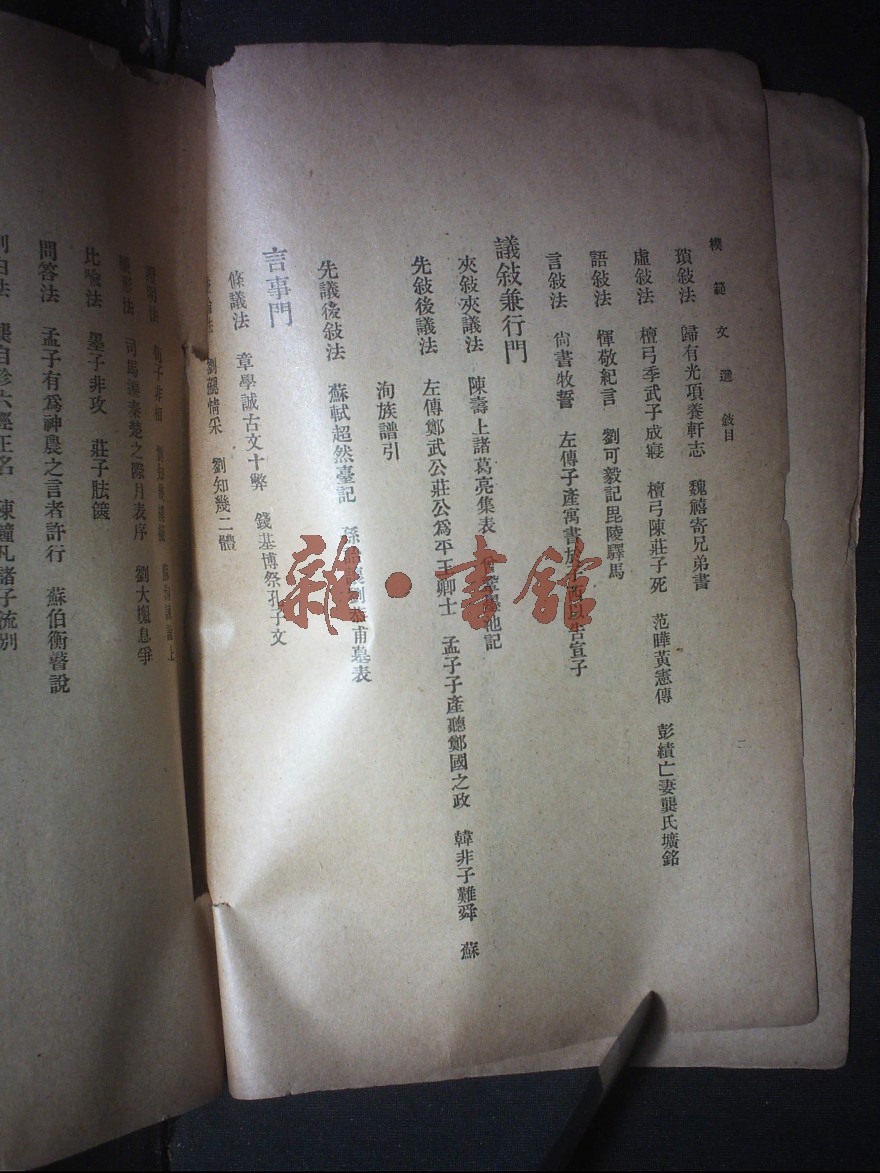 模範文選 敍目
瑣敍法 歸有光項脊軒志 魏禧寄兄弟書
虛敍法 檀弓季武子成寢 檀弓陳莊子死 范曄黃憲傳 彭績亡妻龔氏壙銘
語敍法 惲敬紀言 劉可毅記毘陵驛馬
言敍法 尙書牧誓 左傳子產寓書於 西以告宣子
議敍兼行門
夾敍夾議法 陳壽上諸葛亮集表 池記
先敍後議法 左傳鄭武公莊公爲平王卿士 孟子子產聽鄭國之政 韓非子難舜 蘇
洵族譜引
先議後敍法 蘇軾超然臺記 孫 甫墓表
言事門
條議法 章學誠古文十弊 錢基博祭孔子文
劉勰情采 劉知幾二體
二
荀子非相
司馬遷秦楚之際月表序 劉大櫆息爭
比喩法 墨子非攻 莊子胠篋
問答法 孟子有爲神農之言者許行 蘇伯衡瞽說
龔自珍六經正名 陳鐘凡諸子流別
雜·書館